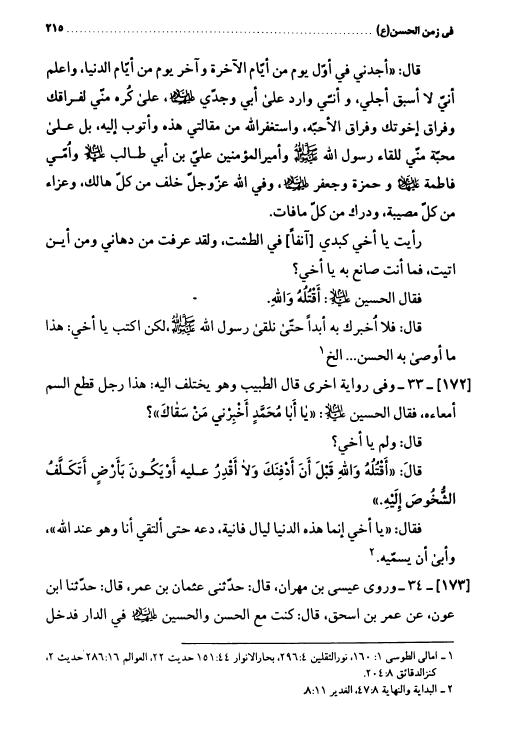 في زمن الحسن(ع) ........................................ ٢١٥
قال: «أجدني في أوّل يوم من أيّام الآخرة وآخر يوم من أيّام الدنيا، واعلم
أنيّ لا أسبق أجلي، و أنـّي وارد علىٰ أبي وجدّي عليهما السلام، علىٰ كُره منّي لفراقك
وفراق إخوتك وفراق الأحبّه، واستغفرالله من مقالتي هذه وأتوب إليه، بل علىٰ
محبّة منّي للقاء رسول الله ﷺ وأميرالمؤمنين عليّ بن أبي طالب عليه السلام وأُمّي
فاطمة عليها السلام و حمزة وجعفر عليهما السلام، وفي الله عزّوجلّ خلف من كلّ هالك، وعزاء
من كلّ مصيبة، ودرك من كلّ مافات.
رأيت يا أخي كبدي [آنفاً] في الطشت، ولقد عرفت من دهاني ومن أيـن
اتيت، فما أنت صانع به يا أخي؟
فقال الحسين عليه السلام: أَقْتُلُهُ وَاللهِ.
قال: فلا اُخبرك به أبداً حتّىٰ نلقىٰ رسول الله ﷺ،لكن اكتب يا أخي: هذا
ما أوصىٰ به الحسن... الخ١
[١٧٢] ـ ٣٣ ـ وفى رواية اخرى قال الطبيب وهو يختلف اليه: هذا رجل قطع السم
أمعاءه، فقال الحسين عليه السلام: «يٰا أَبٰا مُحَمَّدٍ أَخْبِرْني مَنْ سَقٰاكَ»؟
قال: ولم يا أخي؟
قالَ: «أَقْتُلُهُ وَاللهِ قَبْلَ أَنْ أَدْفِنَكَ وَلاٰ أَقْدِرُ عـليه أَوْيَكُـونَ بَأَرْضٍ أَتَكَـلَّفُ
الشُّخُوصَ إِلَيْهِ.»
فقال: «يا أخي إنما هذه الدنيا ليال فانية، دعه حتى ألتقي أنا وهو عند الله»،
وأبىٰ أن يسمّيه.٢
[١٧٣] ـ ٣٤ ـ وروى عيسى بن مهران، قال: حدّثنى عثمان بن عمر، قال: حدّثنا ابن
عون، عن عمر بن اسحق، قال: كنت مع الحسن والحسين عليهما السلام في الدار فدخل
١ ـ امالى الطوسى ١: ١٦٠، نورالثقلين ٢٩٦:٤، بحارالانوار ١٥١:٤٤ حديث ٢٢، العوالم ٢٨٦:١٦ حديث ٢،
كنزالدقائق ٢٠٤:٨.
٢ ـ البداية والنهاية ٤٧:٨، الغدير ٨:١١.